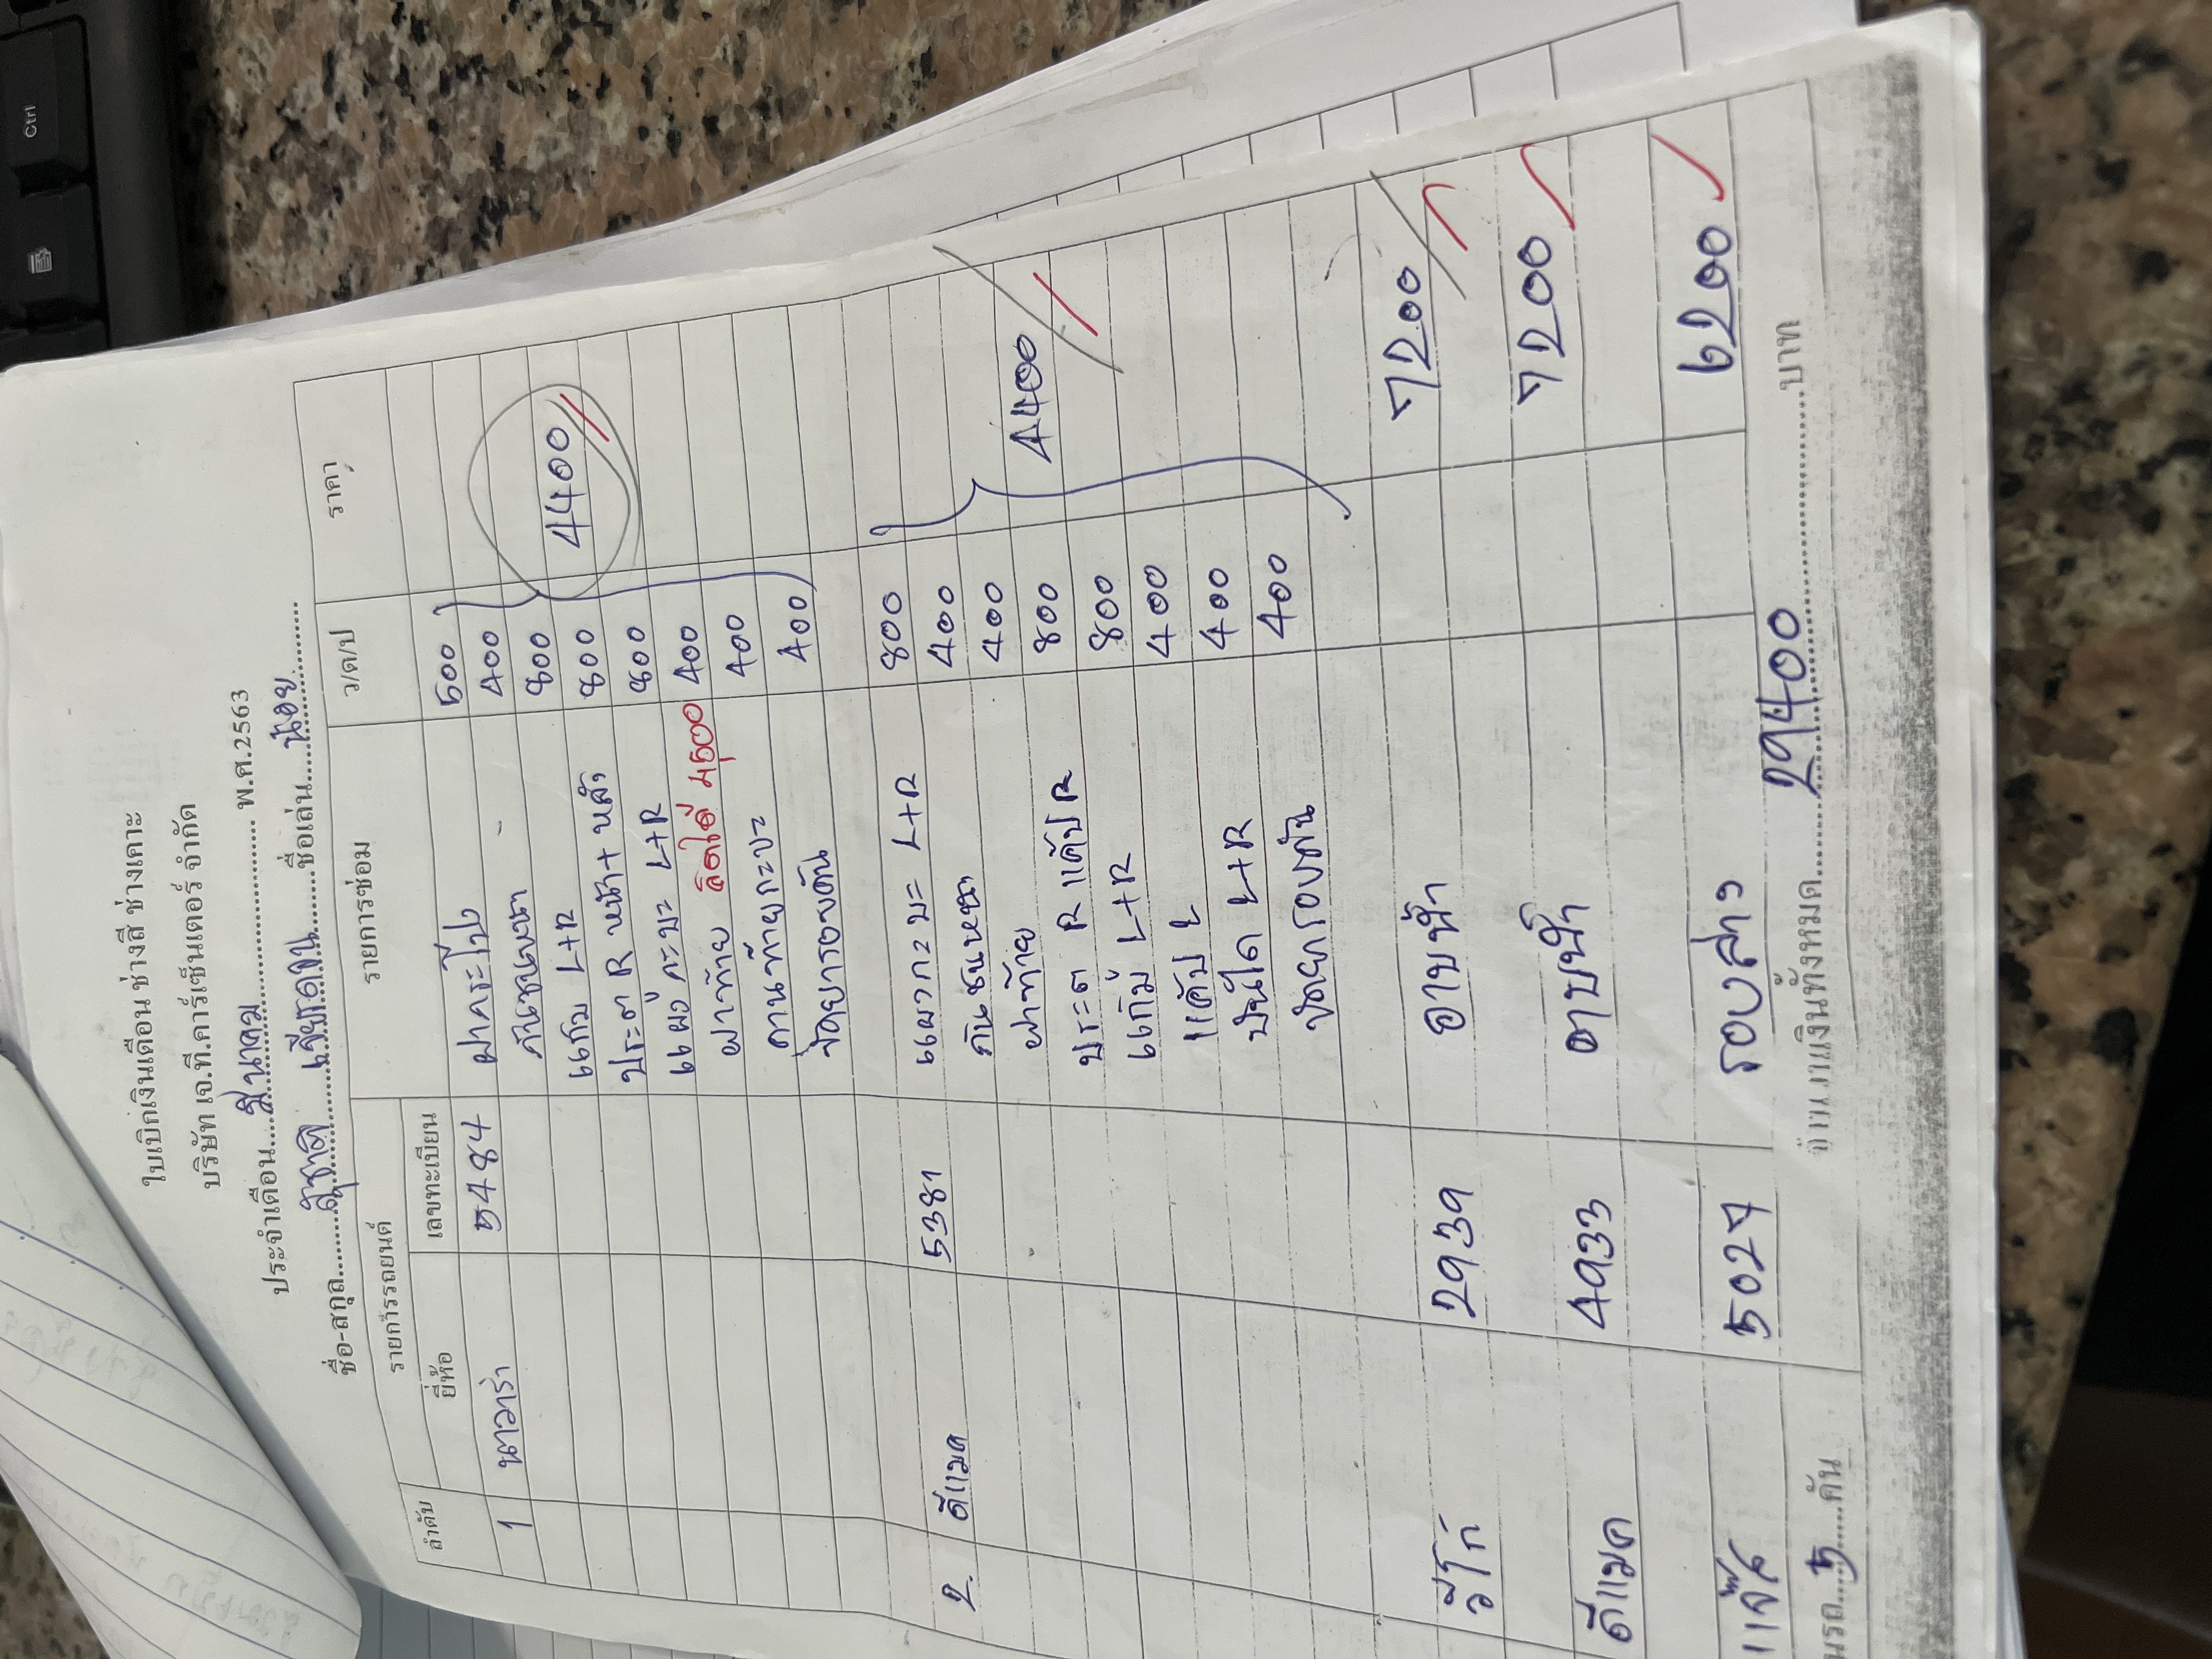 ใบเบิกเงินเดือน ช่างสี ช่างเคาะ
บริษัท เจ.ที.คาร์เซ็นเตอร์ จำกัด
ประจำเดือน....มีนาคม.... พ.ศ.2563
ชื่อ-สกุล....สุชาติ เขียดจน....ชื่อเล่น....น้อย....
ลำดับ รายการรถยนต์ รายการซ่อม ว/ด/ป ราคา
ยี่ห้อ เลขทะเบียน
1 นาวาร่า 5484 ฝากระโปง 500
กันชนหน้า 400
แก้ม L+R 800
ประตู R หน้า+หลัง 800 4400
แผง กะบะ L+R 800
ฝาท้าย 400
คิดได้ 4500
กานท้ายกะบะ 400
ขัดยารอบคัน 400
2. ดีแมค 5381 แผงกะบะ L+R 800
กันชนหน้า 400
ฝาท้าย 400
ประตู R แค๊ป R 800 4400
แก้ม L+R 800
แค๊ป L 400
บันได L+R 400
ขัดยารอบคัน 400
วีโก้ 2939 อาบน้ำ 7200
ดีแมค 4933 อาบน้ำ 7200
แจ๊ส 5027 รอบล่าง 6200
นรถ....5....คัน จำนวนเงินทั้งหมด....29400....บาท
Ctrl